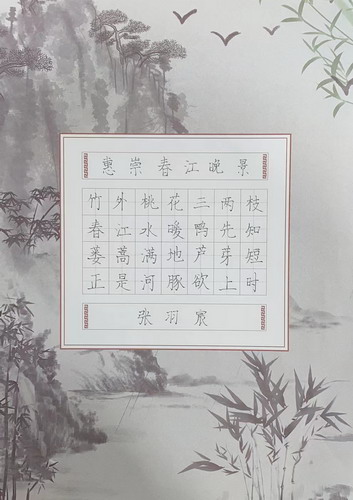 惠崇春江晚景
竹外桃花三两枝
春江水暖鸭先知
蒌蒿满地芦芽短
正是河豚欲上时
张羽宸